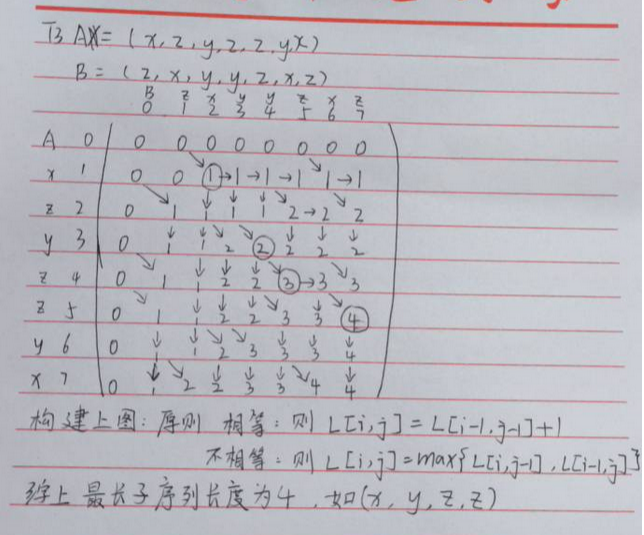 A= (x, z, y, z, z, y, x)
B = (z, x, y, y, z, x, z)
B z x y y z x z
0 1 2 3 4 5 6 7
A 0 0 0 0 0 0 0 0 0
x 1 0 0 1→1→1→1 1→1
z 2 0 1 1 1 1 2→2 2
y 3 0 1 1 2 2 2 2 2
z 4 0 1 1 2 2 3→3 3
z 5 0 1 1 2 2 3 3 4
y 6 0 1 1 2 3 3 3 4
x 7 0 1 2 2 3 3 4 4
构建上图:原则 相等:则 L[i,j] = L[i-1,j-1]+1
不相等:则 L[i,j]=max{L[i,j-1],L[i-1,j]}
综上 最长子序列长度为4,如(x, y, z, z)